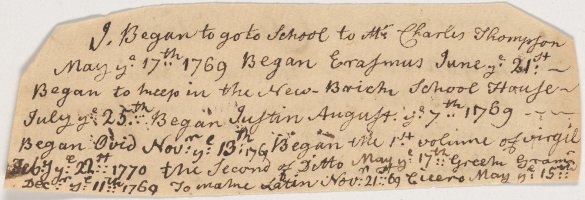 I. Began to go to School to Mr. Charles Thompson
May ye. 17th 1769 Began Erasmus June ye. 21st ~
Began to keep in the New-Brick School House ~
July ye. 25th Began Justin August. ye 7th 1769 ~ ~ ~
Began Ovid Novr. ye. 13th 1769 Began the 1st volume of virgil
Feby. ye 22tt 1770 the Second of Ditto May ye 17th Greek Gramr
Decbr ye 11th 1769 To make Latin Novr. 21st 69 Cicero May ye 15th